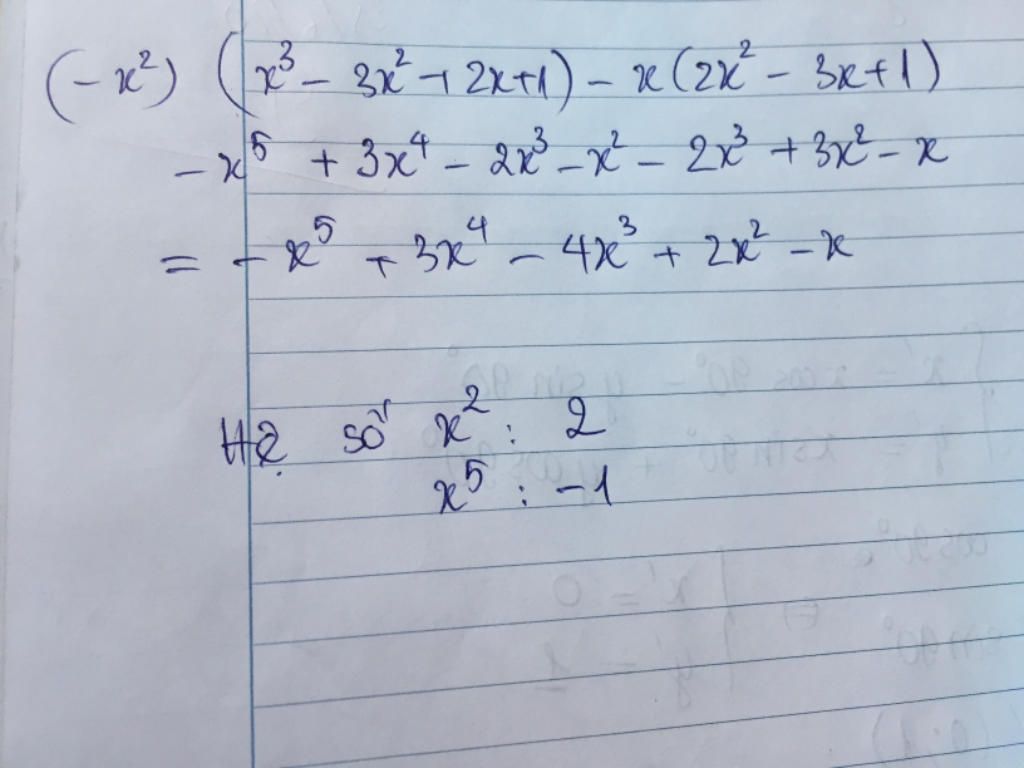 (-x²) (x³ - 3x² + 2x+1) - x(2x² - 3x+1)
-x⁵ + 3x⁴ - 2x³ - x² - 2x³ + 3x² - x
= -x⁵ + 3x⁴ - 4x³ + 2x² - x
Hệ số x² : 2
x⁵ : -1